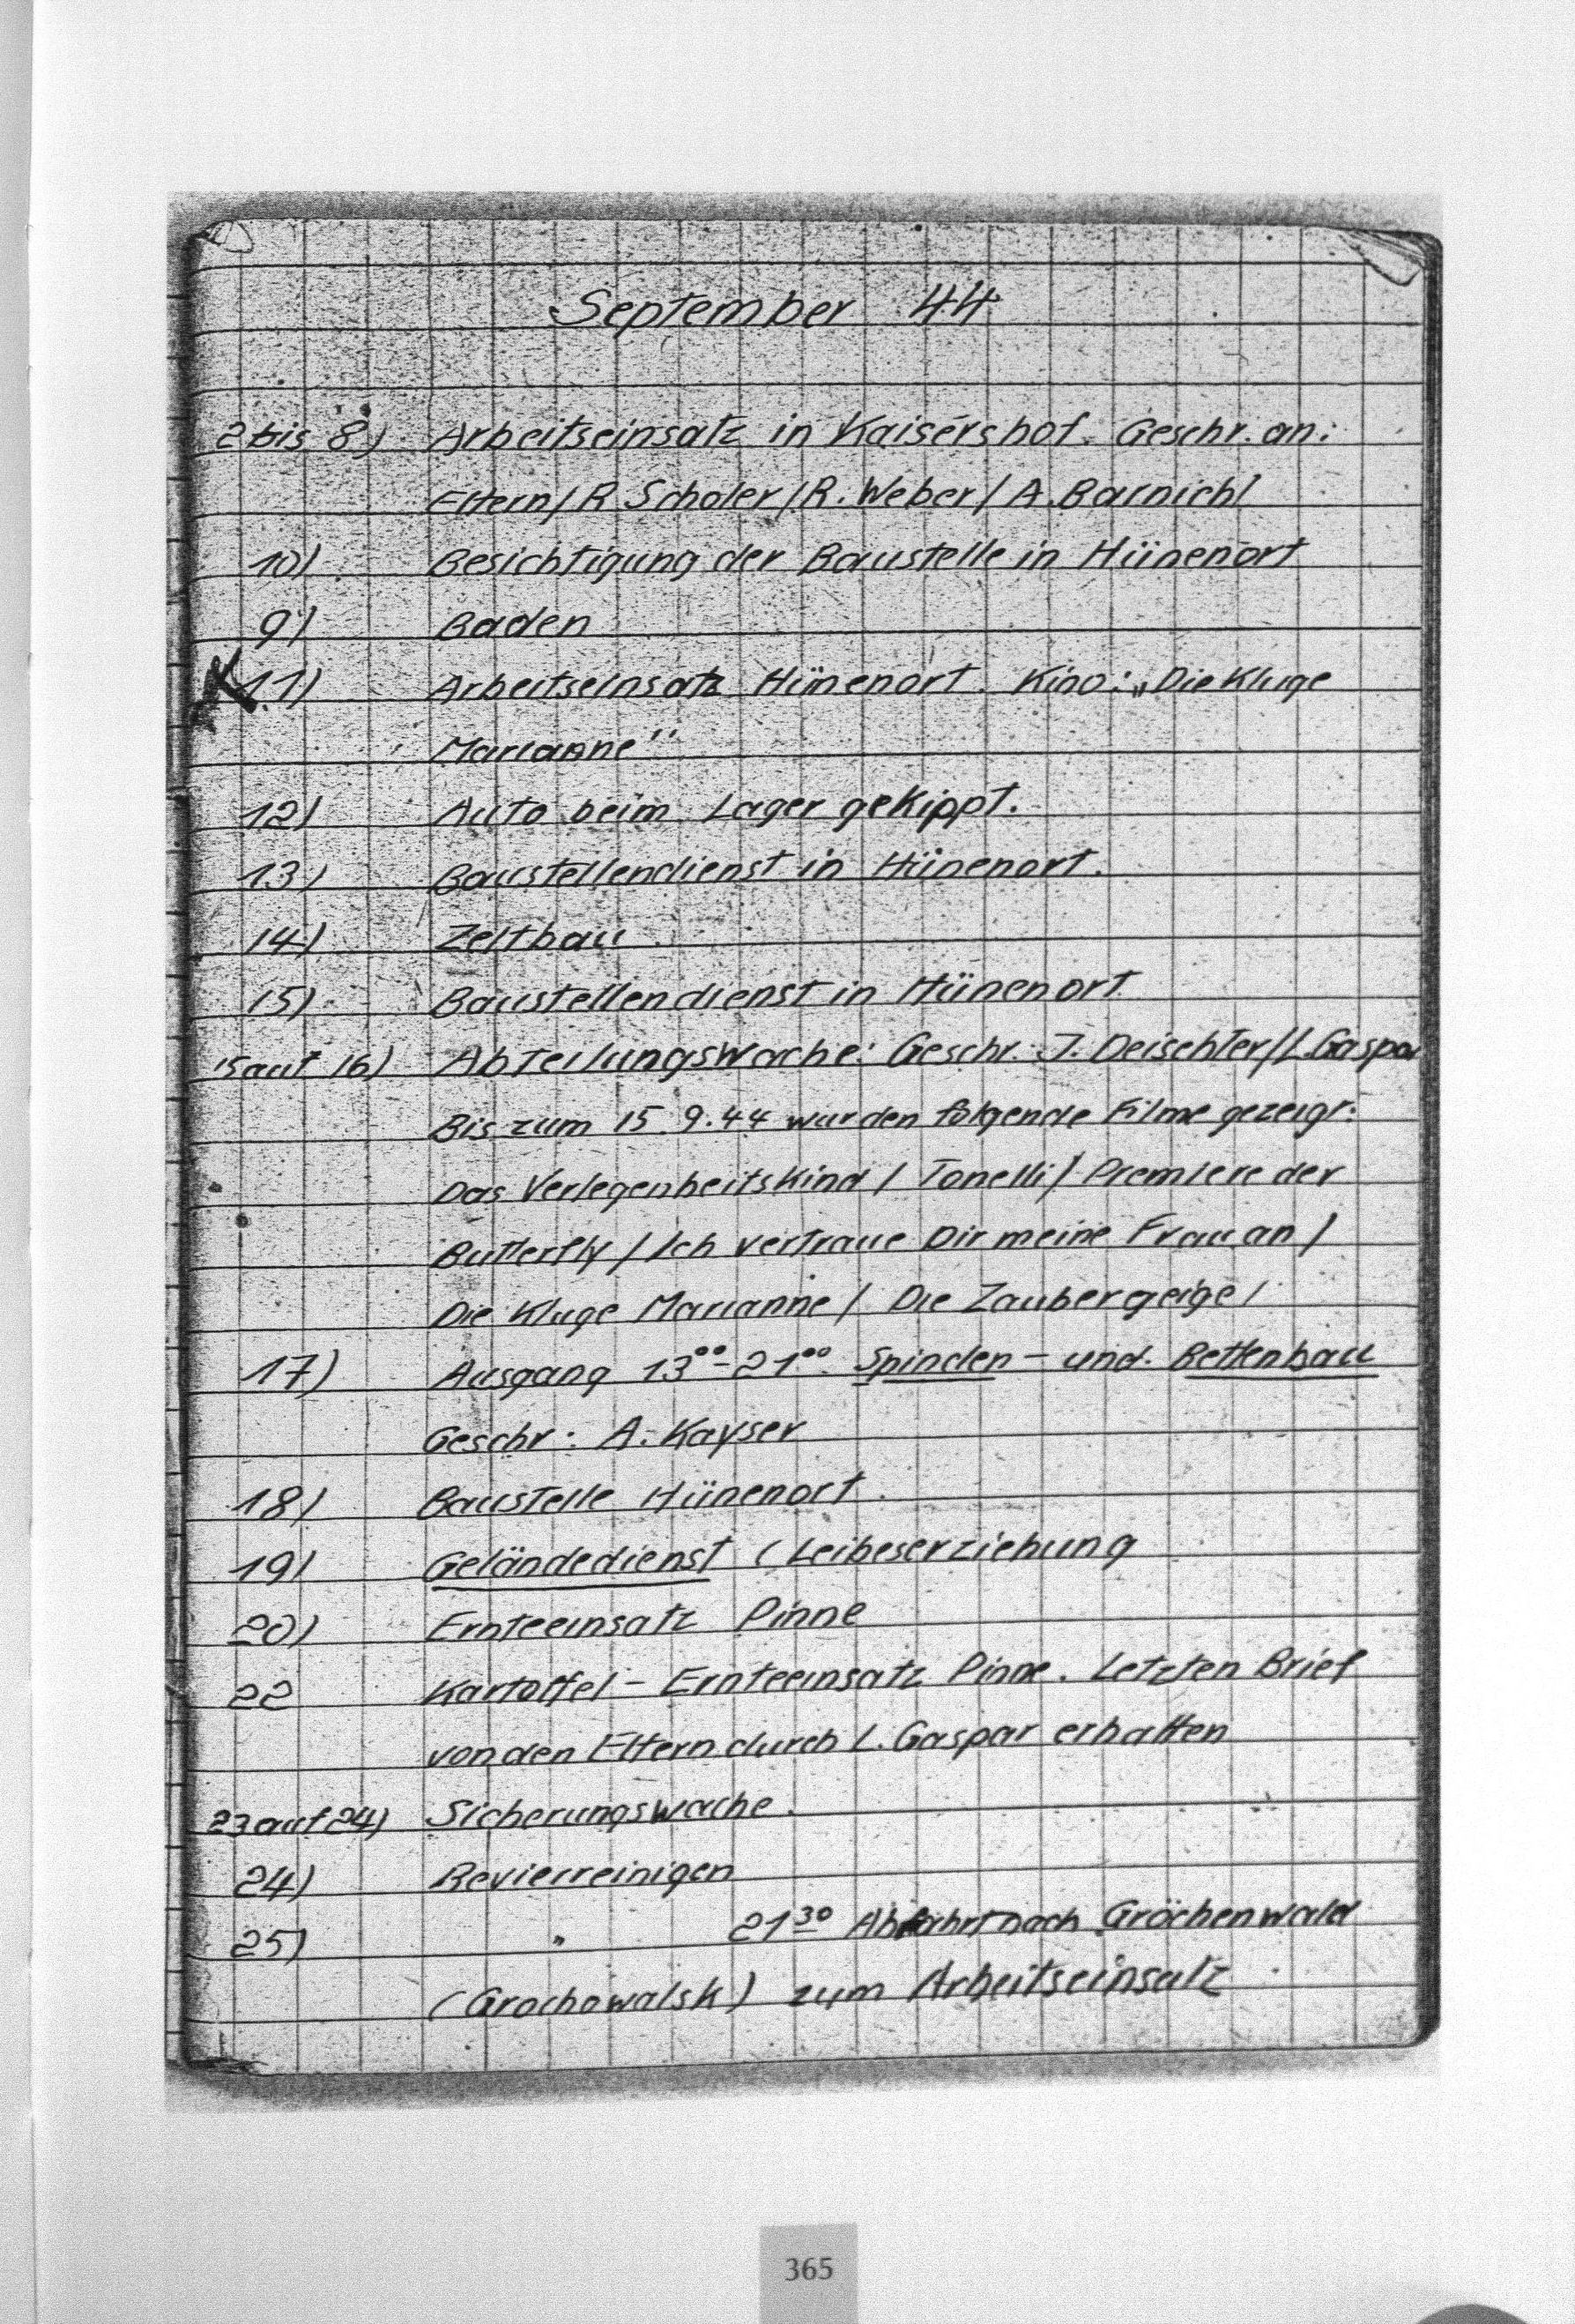 September 44
2 bis 8) Arbeitseinsatz in Kaisershof. Geschr. an:
Eltern / R Scholer / R. Weber / A. Barnich /
10) Besichtigung der Baustelle in Hünenort
9) Baden
11) Arbeitseinsatz Hünenort. Kino: „Die Kluge
Marianne"
12) Auto beim Lager gekippt.
13) Baustellendienst in Hünenort.
14) Zeltbau
15) Baustellendienst in Hünenort
15 auf 16) Abteilungswache: Geschr. J. Deischter / L. Gaspar
Bis zum 15.9.44 wurden folgende Filme gezeigt:
Das Verlegenheitskind / Tonelli / Premiere der
Butterfly / Ich vertraue Dir meine Frau an /
Die Kluge Marianne / Die Zaubergeige /
17) Ausgang 13⁰⁰-21⁰⁰. Spinden- und Bettenbau
Geschr: A. Kayser
18) Baustelle Hünenort
19) Geländedienst (Leibeserziehung
20) Ernteeinsatz Pinne
22 Kartoffel-Ernteeinsatz Pinne. Letzten Brief
von den Eltern durch L. Gaspar erhalten
23 auf 24) Sicherungswache.
24) Revierreinigen
25) " 21³⁰ Abfahrt nach Gröchenwald
(Grochowalsk) zum Arbeitseinsatz
365